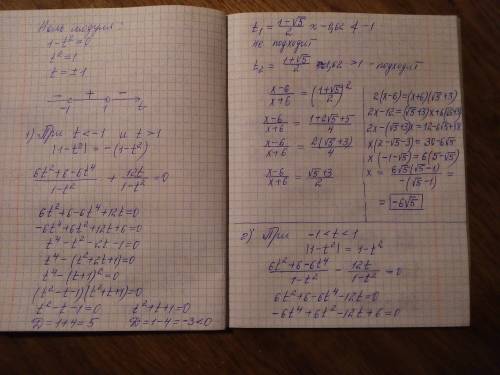 Ноль модуля:
1-t²=0
t²=1
t=±1
- + -
-1 1 t
1) При t<-1 и t>1
|1-t²| = -(1-t²)
6t²+6-6t⁴/1-t² + 12t/1-t² = 0
6t²+6-6t⁴+12t=0
-6t⁴+6t²+12t+6=0
t⁴-t²-2t-1=0
t⁴-(t²+2t+1)=0
t⁴-(t+1)²=0
(t²-t-1)(t²+t+1)=0
t²-t-1=0 t²+t+1=0
D=1+4=5 D=1-4=-3<0
t₁ = 1-√5/2 ≈ -0,62 < -1
не подходит
t₂ = 1+√5/2 ≈ 1,62 > 1 - подходит
x-6/x+6 = (1+√5/2)²
x-6/x+6 = 1+2√5+5/4
x-6/x+6 = 2(√5+3)/4
x-6/x+6 = √5+3/2
2(x-6)=(x+6)(√5+3)
2x-12=(√5+3)x+6(√5+3)
2x-(√5+3)x=12+6√5+18
x(2-√5-3)=30+6√5
x(-1-√5)=6(5+√5)
x = 6√5(√5+1)/-(√5+1) =
= -6√5
2) При -1<t<1
|1-t²| = 1-t²
6t²+6-6t⁴/1-t² - 12t/1-t² = 0
6t²+6-6t⁴-12t=0
-6t⁴+6t²-12t+6=0